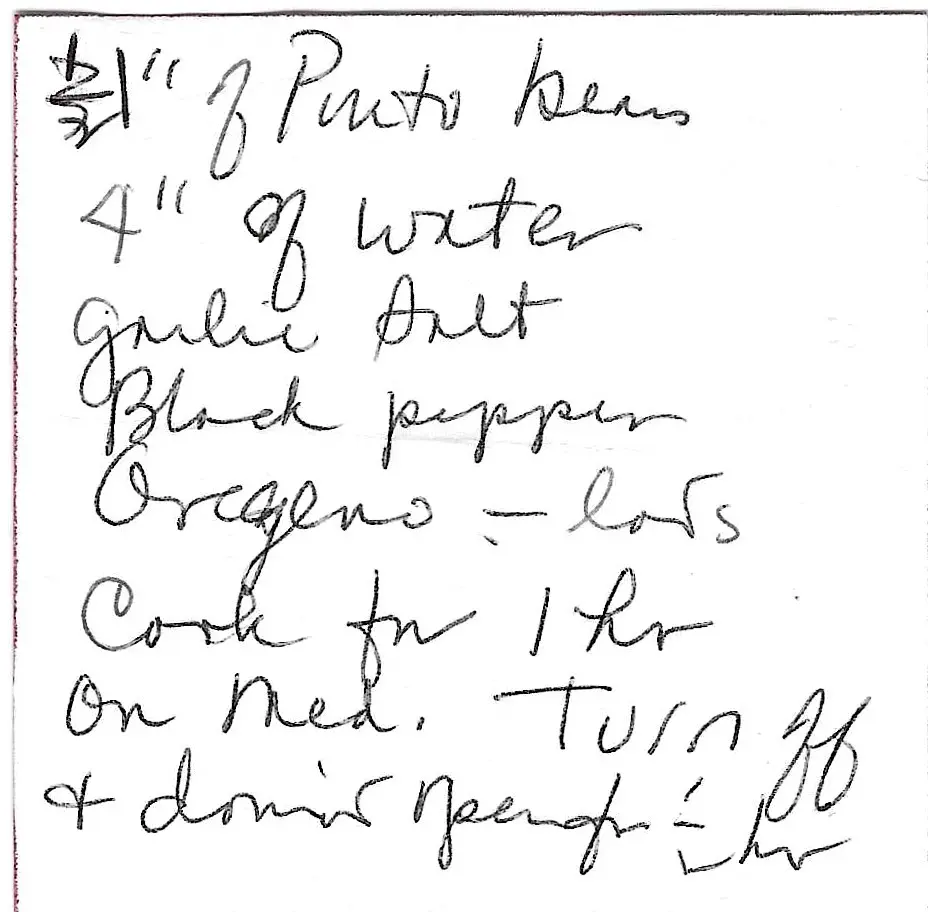 1" of Pinto beans
4" of water
Garlic Salt
Black pepper
Oregeno - lots
Cook for 1 hr
On Med. Turn off
& don't open for - hr